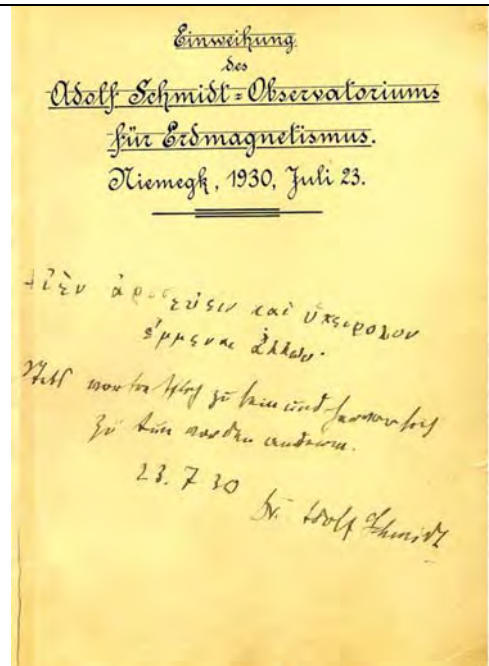 Einweihung
des
Adolf Schmidt=Observatoriums
für Erdmagnetismus.
Niemegk, 1930, Juli 23.
Αἰὲν ἀριστεύειν καὶ ὑπείροχον
ἔμμεναι ἄλλων.
Stets vortrefflich zu sein und hervor sich
zu tun vor den anderen.
23. 7 30
Dr. Adolf Schmidt